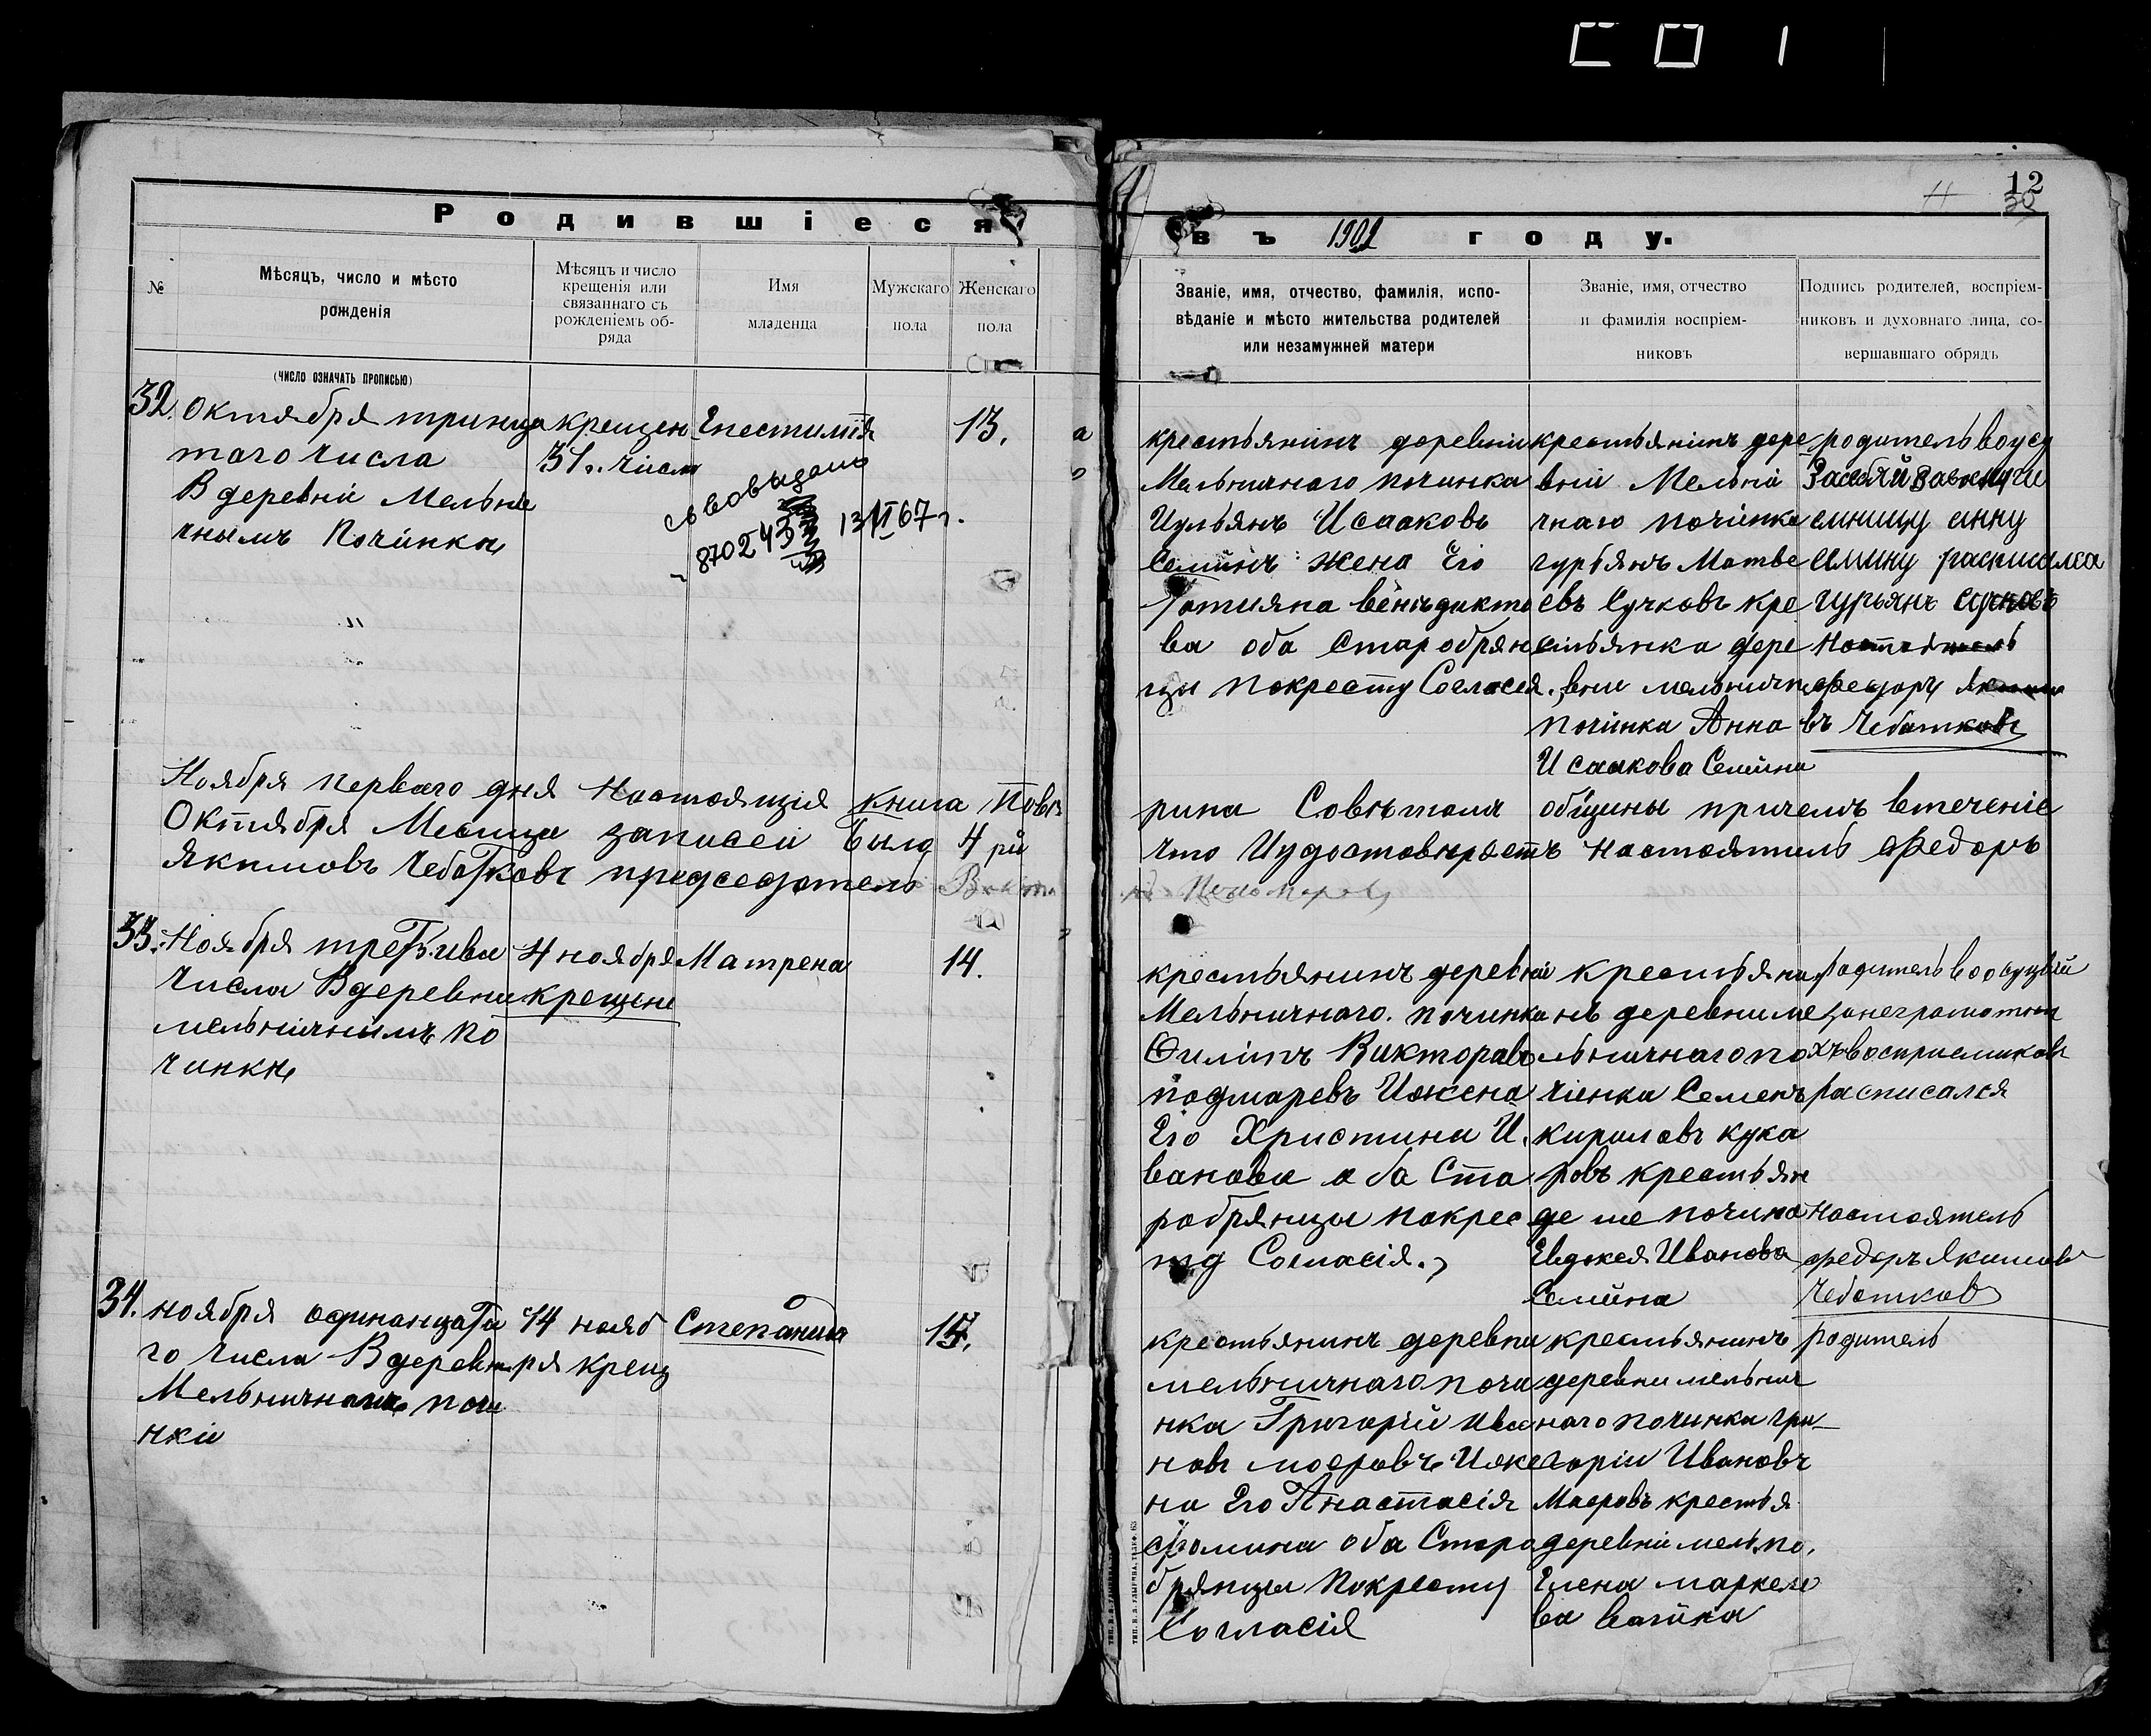 12
11
30
Родившіеся
въ 1902 году.
№
Мѣсяцъ, число и мѣсто
рожденія
Мѣсяцъ и число
крещенія или
связаннаго съ
рожденіемъ об-
ряда
Имя
младенца
Мужскаго
пола
Женскаго
пола
Званіе, имя, отчество, фамилія, испо-
вѣданіе и мѣсто жительства родителей
или незамужней матери
Званіе, имя, отчество
и фамилія воспріем-
никовъ
Подпись родителей, воспріем-
никовъ и духовнаго лица, со-
вершавшаго обрядъ
(ЧИСЛО ОЗНАЧАТЬ ПРОПИСЬЮ)
32.
Октября тритца
таго числа
В деревни Мельни
чнымъ Починке
крещен
31. числ
Епестимія
св во выдано
13/VI 67 г.
13.
крестьянинъ деревни
Мельничного починка
Иульянъ Исааковъ
Семинъ жена Его
Татияна Венедикто
ва оба Старобрян
цы покресту Согласія.
крестьянинъ дере
вни Мельни
чнаго починка
гурьянъ Матве
евъ Сучковъ кре
стьянка дере
вни мельничн
починка Анна
Исаакова Семина
родитель
Засебяй
синицу анну
семину расписался
гурьянъ
Настоятель
федоръ
въ Чебатковъ
Ноября перваго дня Настоящия книга Пове
рина Совѣтомъ общины причемъ втеченіе
Октября Месяца записей было 4 ри
что Иудостоверяетъ настоятель Федоръ
Якимовъ Чебатковъ председатель
33.
Ноября третьива
числа В деревни
мельничнымъ по
чинке
4 ноября
крещене
Матрена
14.
крестьянинъ деревни
Мельничнаго. починка
Филипъ Викторовъ
подмаревъ Ижена
Его Христина И.
ванова оба Ста
робрянцы покрес
ту Согласія.
крестьяни
нъ деревни ме
льничнаго по
чинка Семенъ
кириловъ кука
ровъ крестьян
де ше почина
Евдокея Иванова
Семина
родитель
занеграмотны
хъ восприемниковъ
расписался
Настоятель
федоръ якимовъ
Чебатковъ
34.
ноября одинацати
го числа В деревн
Мельничнымъ почи
нки
14 нояб
ря крещ
Степанида
15.
крестьянинъ деревни
мельничнаго почи
нка Григорій Ива
новъ моеровъ Иже
на Его Анастасія
Фомина оба Старо
брянцы Покресту
Согласія
крестьянинъ
деревни мельнич
наго починка гри
горіи Ивановъ
Маеровъ крестья
деревни мель. по.
Елена маркело
ва
родитель